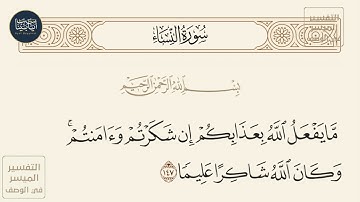 سُورَةُ النِّسَاءِ
التفسير
الميسر
في الوصف
بِسْمِ اللَّهِ الرَّحْمَٰنِ الرَّحِيمِ
مَّا يَفْعَلُ اللَّهُ بِعَذَابِكُمْ إِن شَكَرْتُمْ وَءَامَنتُمْ ۚ
وَكَانَ اللَّهُ شَاكِرًا عَلِيمًا ١٤٧
التفسير
الميسر
في الوصف